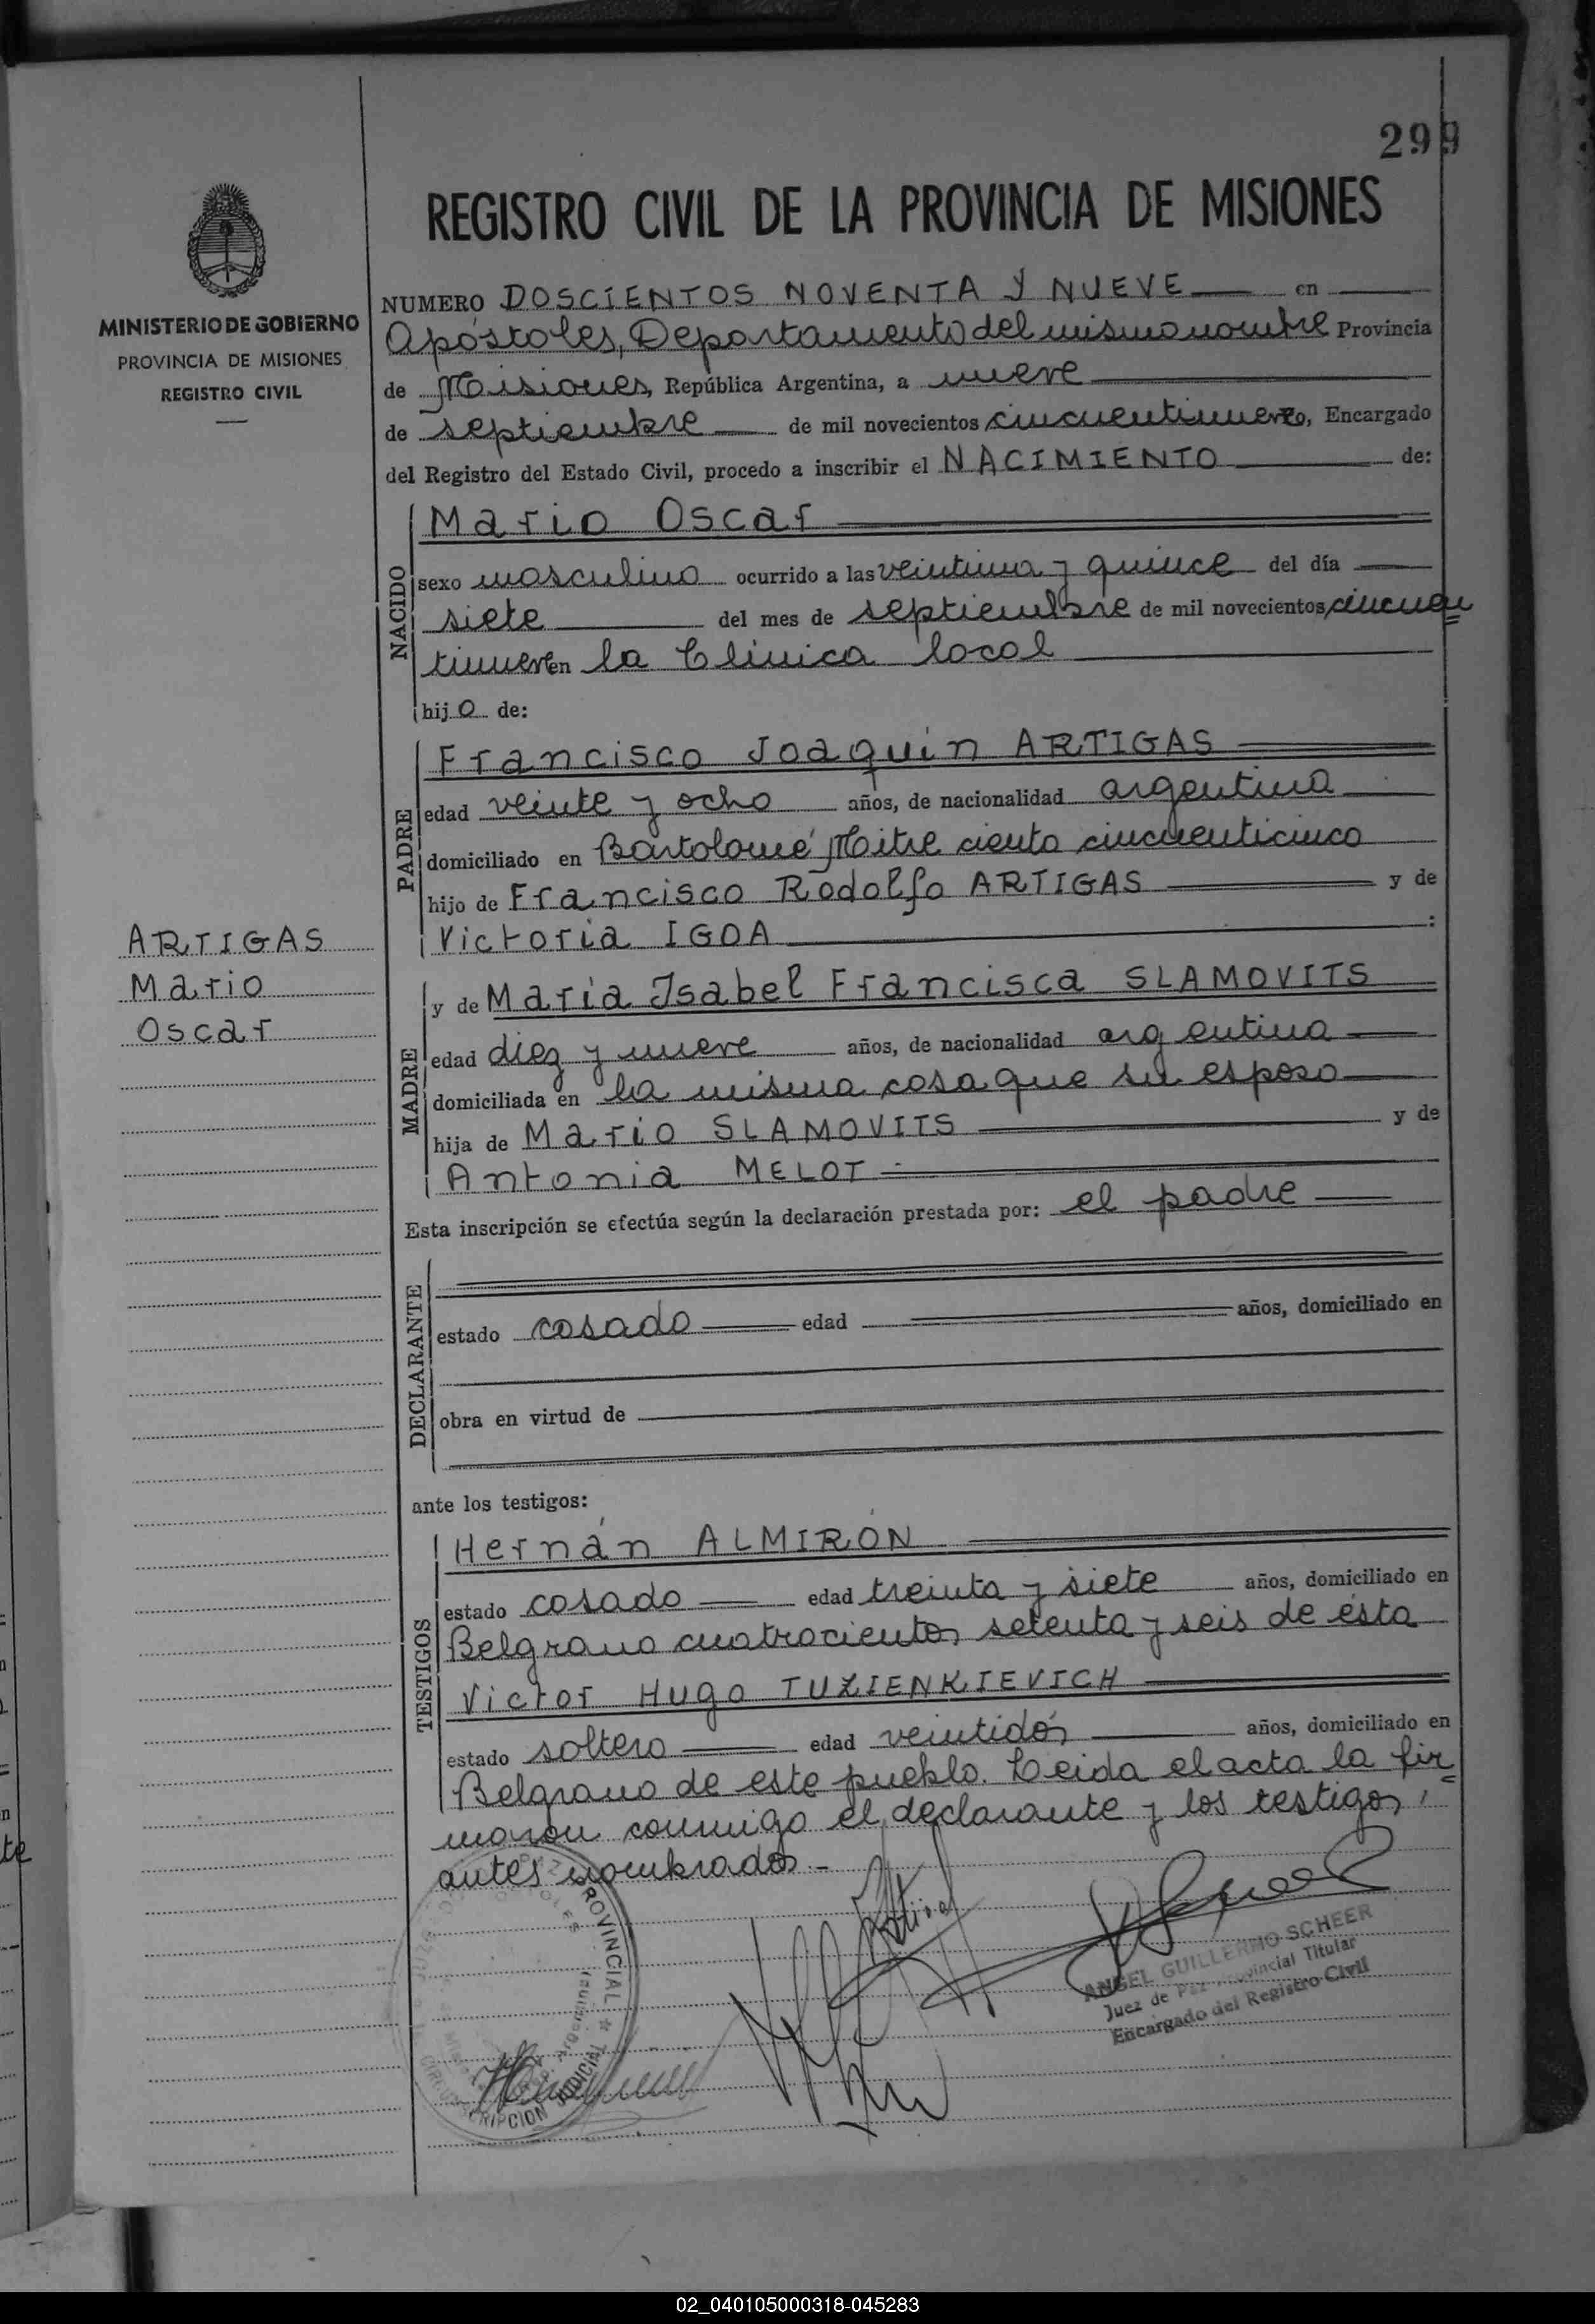 299
REGISTRO CIVIL DE LA PROVINCIA DE MISIONES
MINISTERIO DE GOBIERNO
PROVINCIA DE MISIONES
REGISTRO CIVIL
NUMERO DOSCIENTOS NOVENTA Y NUEVE en
Apóstoles, Departamento del mismo nombre Provincia
de Misiones, República Argentina, a nueve
de septiembre de mil novecientos cincuentinueve, Encargado
del Registro del Estado Civil, procedo a inscribir el NACIMIENTO de:
NACIDO
Mario Oscar
sexo masculino ocurrido a las veintiuna y quince del día
siete del mes de septiembre de mil novecientos cincuen
tinueve en la Clinica local
hijo de:
PADRE
Francisco Joaquin ARTIGAS
edad veinte y ocho años, de nacionalidad argentina
domiciliado en Bartolomé Mitre ciento cincuenticinco
hijo de Francisco Rodolfo ARTIGAS y de
Victoria IGOA :
ARTIGAS
Mario
Oscar
MADRE
y de María Isabel Francisca SLAMOVITS
edad diez y nueve años, de nacionalidad argentina
domiciliada en la misma casa que su esposo
hija de Mario SLAMOVITS y de
Antonia MELOT
Esta inscripción se efectúa según la declaración prestada por: el padre
DECLARANTE
estado casado edad años, domiciliado en
obra en virtud de
ante los testigos:
TESTIGOS
Hernán ALMIRÓN
estado casado edad treinta y siete años, domiciliado en
Belgrano cuatrocientos setenta y seis de ésta
Victor Hugo TUZIENKIEVICH
estado soltero edad veintidós años, domiciliado en
Belgrano de este pueblo. Leida el acta la fir
maron conmigo el declarante y los testigos
antes nombrados.-
PROVINCIAL
ANGEL GUILLERMO SCHEER
Juez de Paz Provincial Titular
Encargado del Registro Civil
02_040105000318-045283